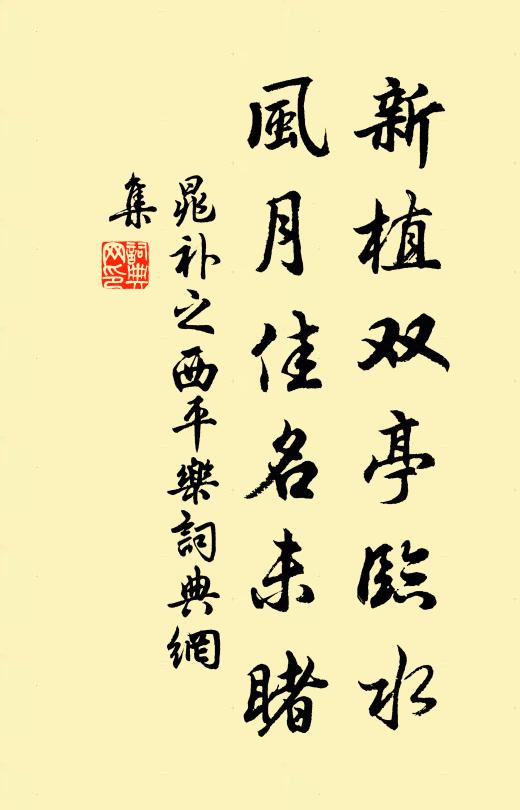 新植双亭臨水
風月佳名未睹
晁补之西平樂詞典網
集
詞典网印